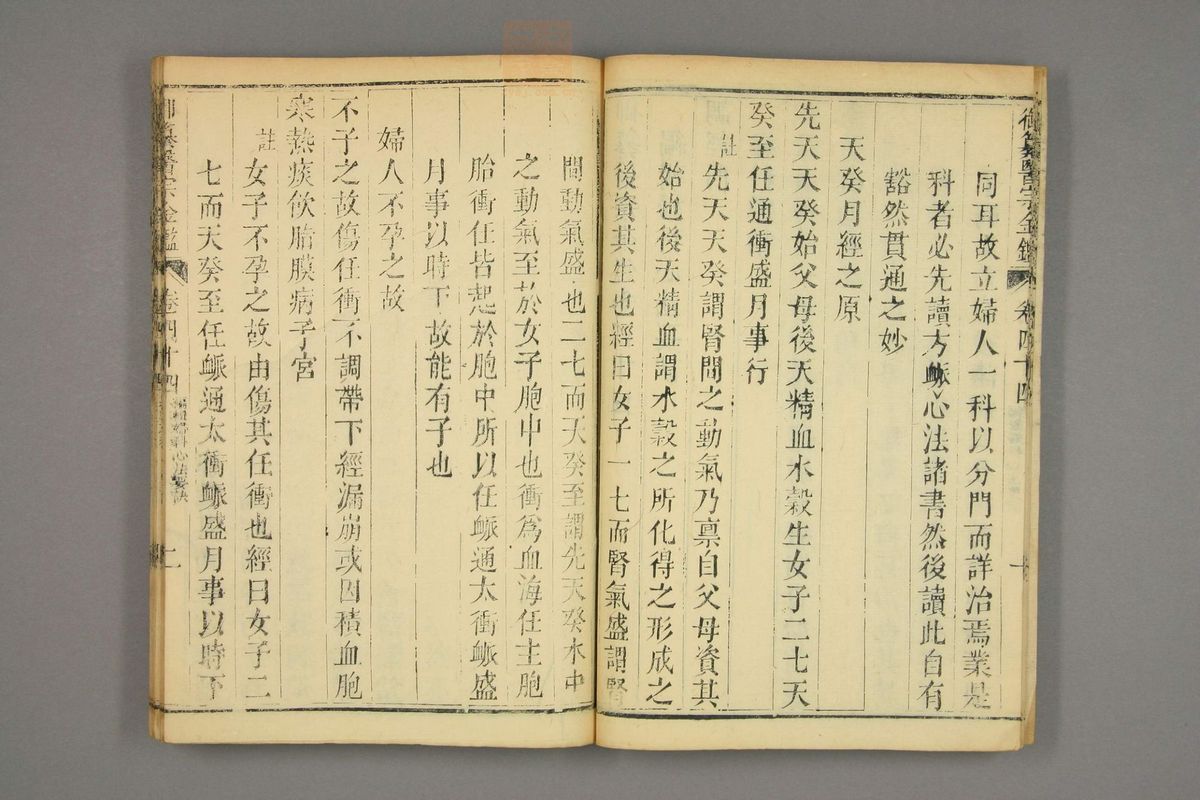 御纂醫宗金鑑 卷四十四
同耳故立婦人一科以分門而詳治焉業是
科者必先讀方脈心法諸書然後讀此自有
豁然貫通之妙
天癸月經之原
先天天癸始父母後天精血水穀生女子二七天
癸至任通衝盛月事行
註先天天癸謂腎間之動氣乃禀自父母資其
始也後天精血謂水穀之所化得之形成之
後資其生也經曰女子一七而腎氣盛謂腎
間動氣盛也二七而天癸至謂先天癸水中
之動氣至於女子胞中也衝爲血海任主胞
胎衝任皆起於胞中所以任脈通太衝脈盛
月事以時下故能有子也
婦人不孕之故
不子之故傷任衝不調帶下經漏崩或因積血胞
寒熱痰飲脂膜病子宮
註女子不孕之故由傷其任衝也經曰女子二
七而天癸至任脈通太衝脈盛月事以時下
御纂醫宗金鑑 卷四十四 編輯婦科心法要訣